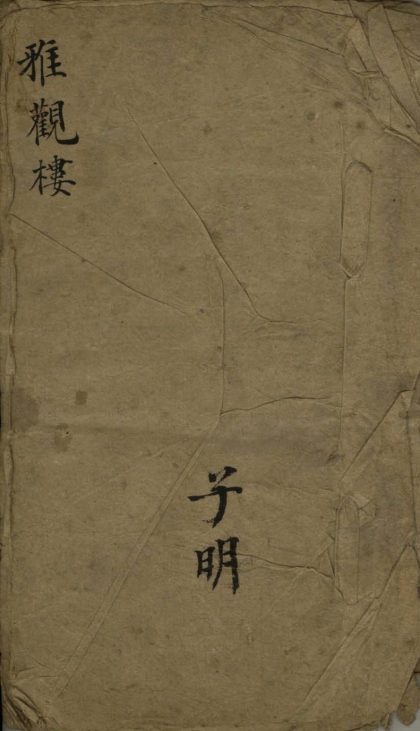 雅觀樓
子明